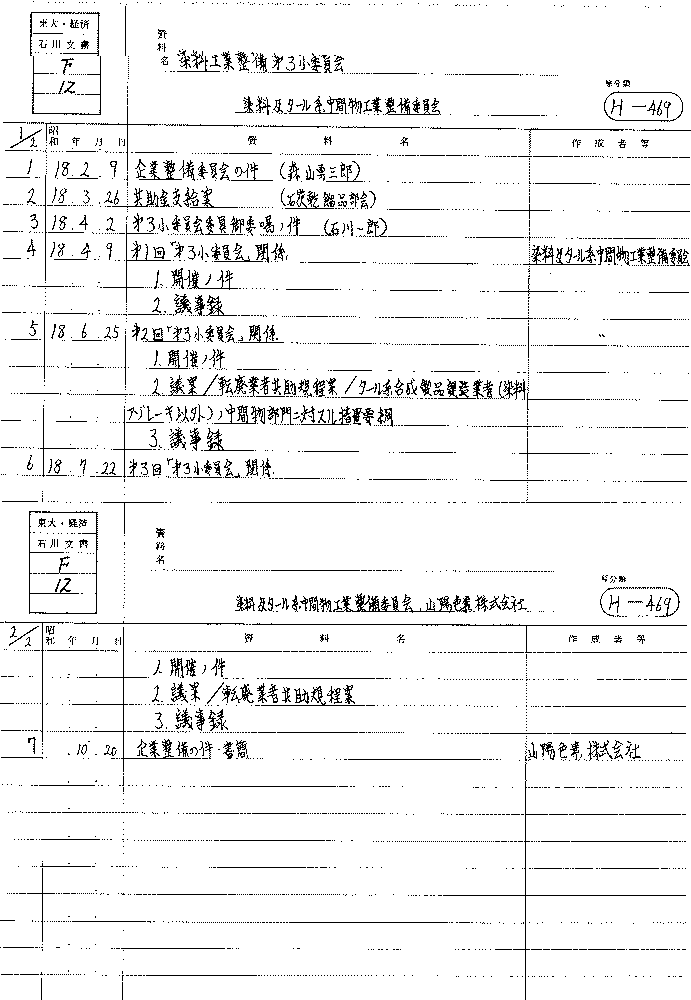 東大・経済
石川文書
F
12
資料名 染料工業整備第3小委員会
染料及タール系中間物工業整備委員会
等分類
H-469
1/2 昭和 年 月 日 資 料 名 作 成 者 等
1 18.2.9 企業整備委員会の件 (森山勇三郎)
2 18.3.26 共助金支給案 (石炭乾餾品部会)
3 18.4.2 第3小委員会委員御委嘱ノ件 (石川一郎)
4 18.4.9 第1回「第3小委員会」関係. 染料及タール系中間物工業整備委員会
1. 開催ノ件
2. 議事録
5 18.6.25 第2回「第3小委員会」関係. 〃
1. 開催ノ件
2. 議案/転廃業者共助規程案/タール系合成製品製造業者(染料
及レーキ以外)ノ中間物部門ニ対スル措置要綱
3. 議事録
6 18.7.22 第3回「第3小委員会」関係.
東大・経済
石川文書
F
12
資料名
等分類
H-469
染料及タール系中間物工業整備委員会, 山陽色素株式会社
2/2 昭和 年 月 日 資 料 名 作 成 者 等
1. 開催ノ件
2. 議案/転廃業者共助規程案
3. 議事録
7 .10.20 企業整備の件・書簡 山陽色素株式会社